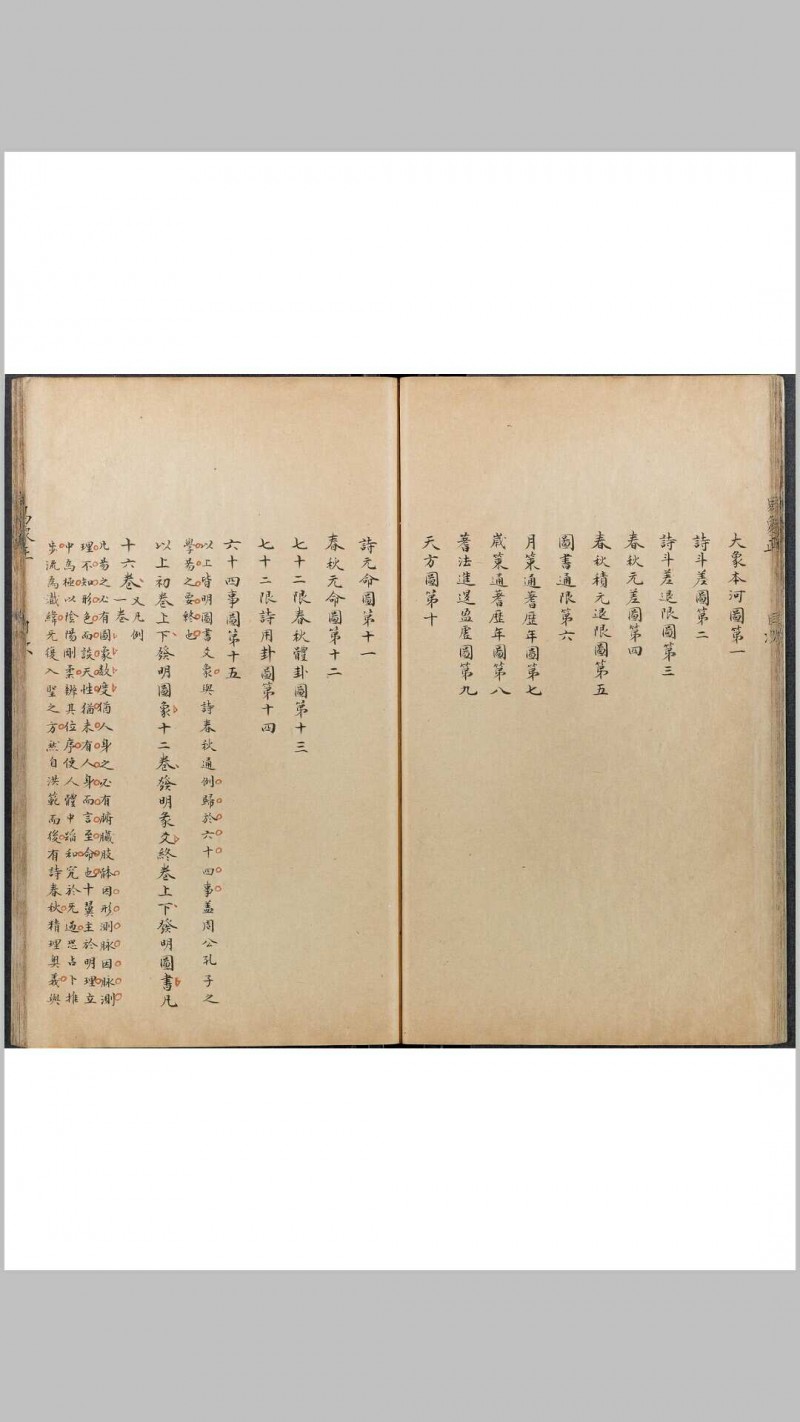 大象本河圖第一
詩斗差圖第二
詩斗差退限圖第三
春秋元差圖第四
春秋積元退限圖第五
圖書通限第六
月策通蓍歷年圖第七
歲策通蓍歷年圖第八
蓍法進退盈虛圖第九
天方圖第十
詩元命圖第十一
春秋元命圖第十二
七十二限春秋體卦圖第十三
七十二限詩用卦圖第十四
六十四事圖第十五
以上皆明圖書爻象與詩春秋通例歸於六十四事蓋周公孔子之
學易之要終也
以上初卷上下發明圖象十二卷發明彖爻終卷上下發明圖書凡
十六卷又凡例一卷
凡易之必有圖象數度猶人身之必有腑臟肢體因形測脉因脉測
理不知形色而談天性猶未有人身而言至命也十翼主於明理立
中為極以陰陽剛柔辨其位序使人體中蹈和究於元過思占卜推
步流為讖緯先復入聖之方然自洪範而後有詩春秋精理奧義與